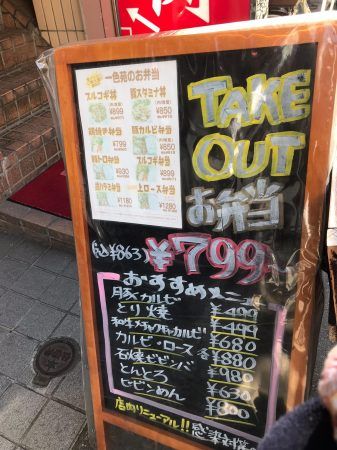 一色苑のお弁当
プルコギ丼
豚スタミナ丼
¥899
¥850
¥799
豚カルビ弁当
¥850
豚トロ弁当
プルコギ弁当
¥930
上ロース弁当
¥1280
¥1180
TAKE
OUT
お弁当
¥799
おすすめメニュー
豚カルビ ¥499
とり焼 ¥499
カルビ・ロース 各¥880
石焼ビビンバ ¥980
とんとろ ¥630
ビビンめん ¥800
店内リニューアル!!感染対策